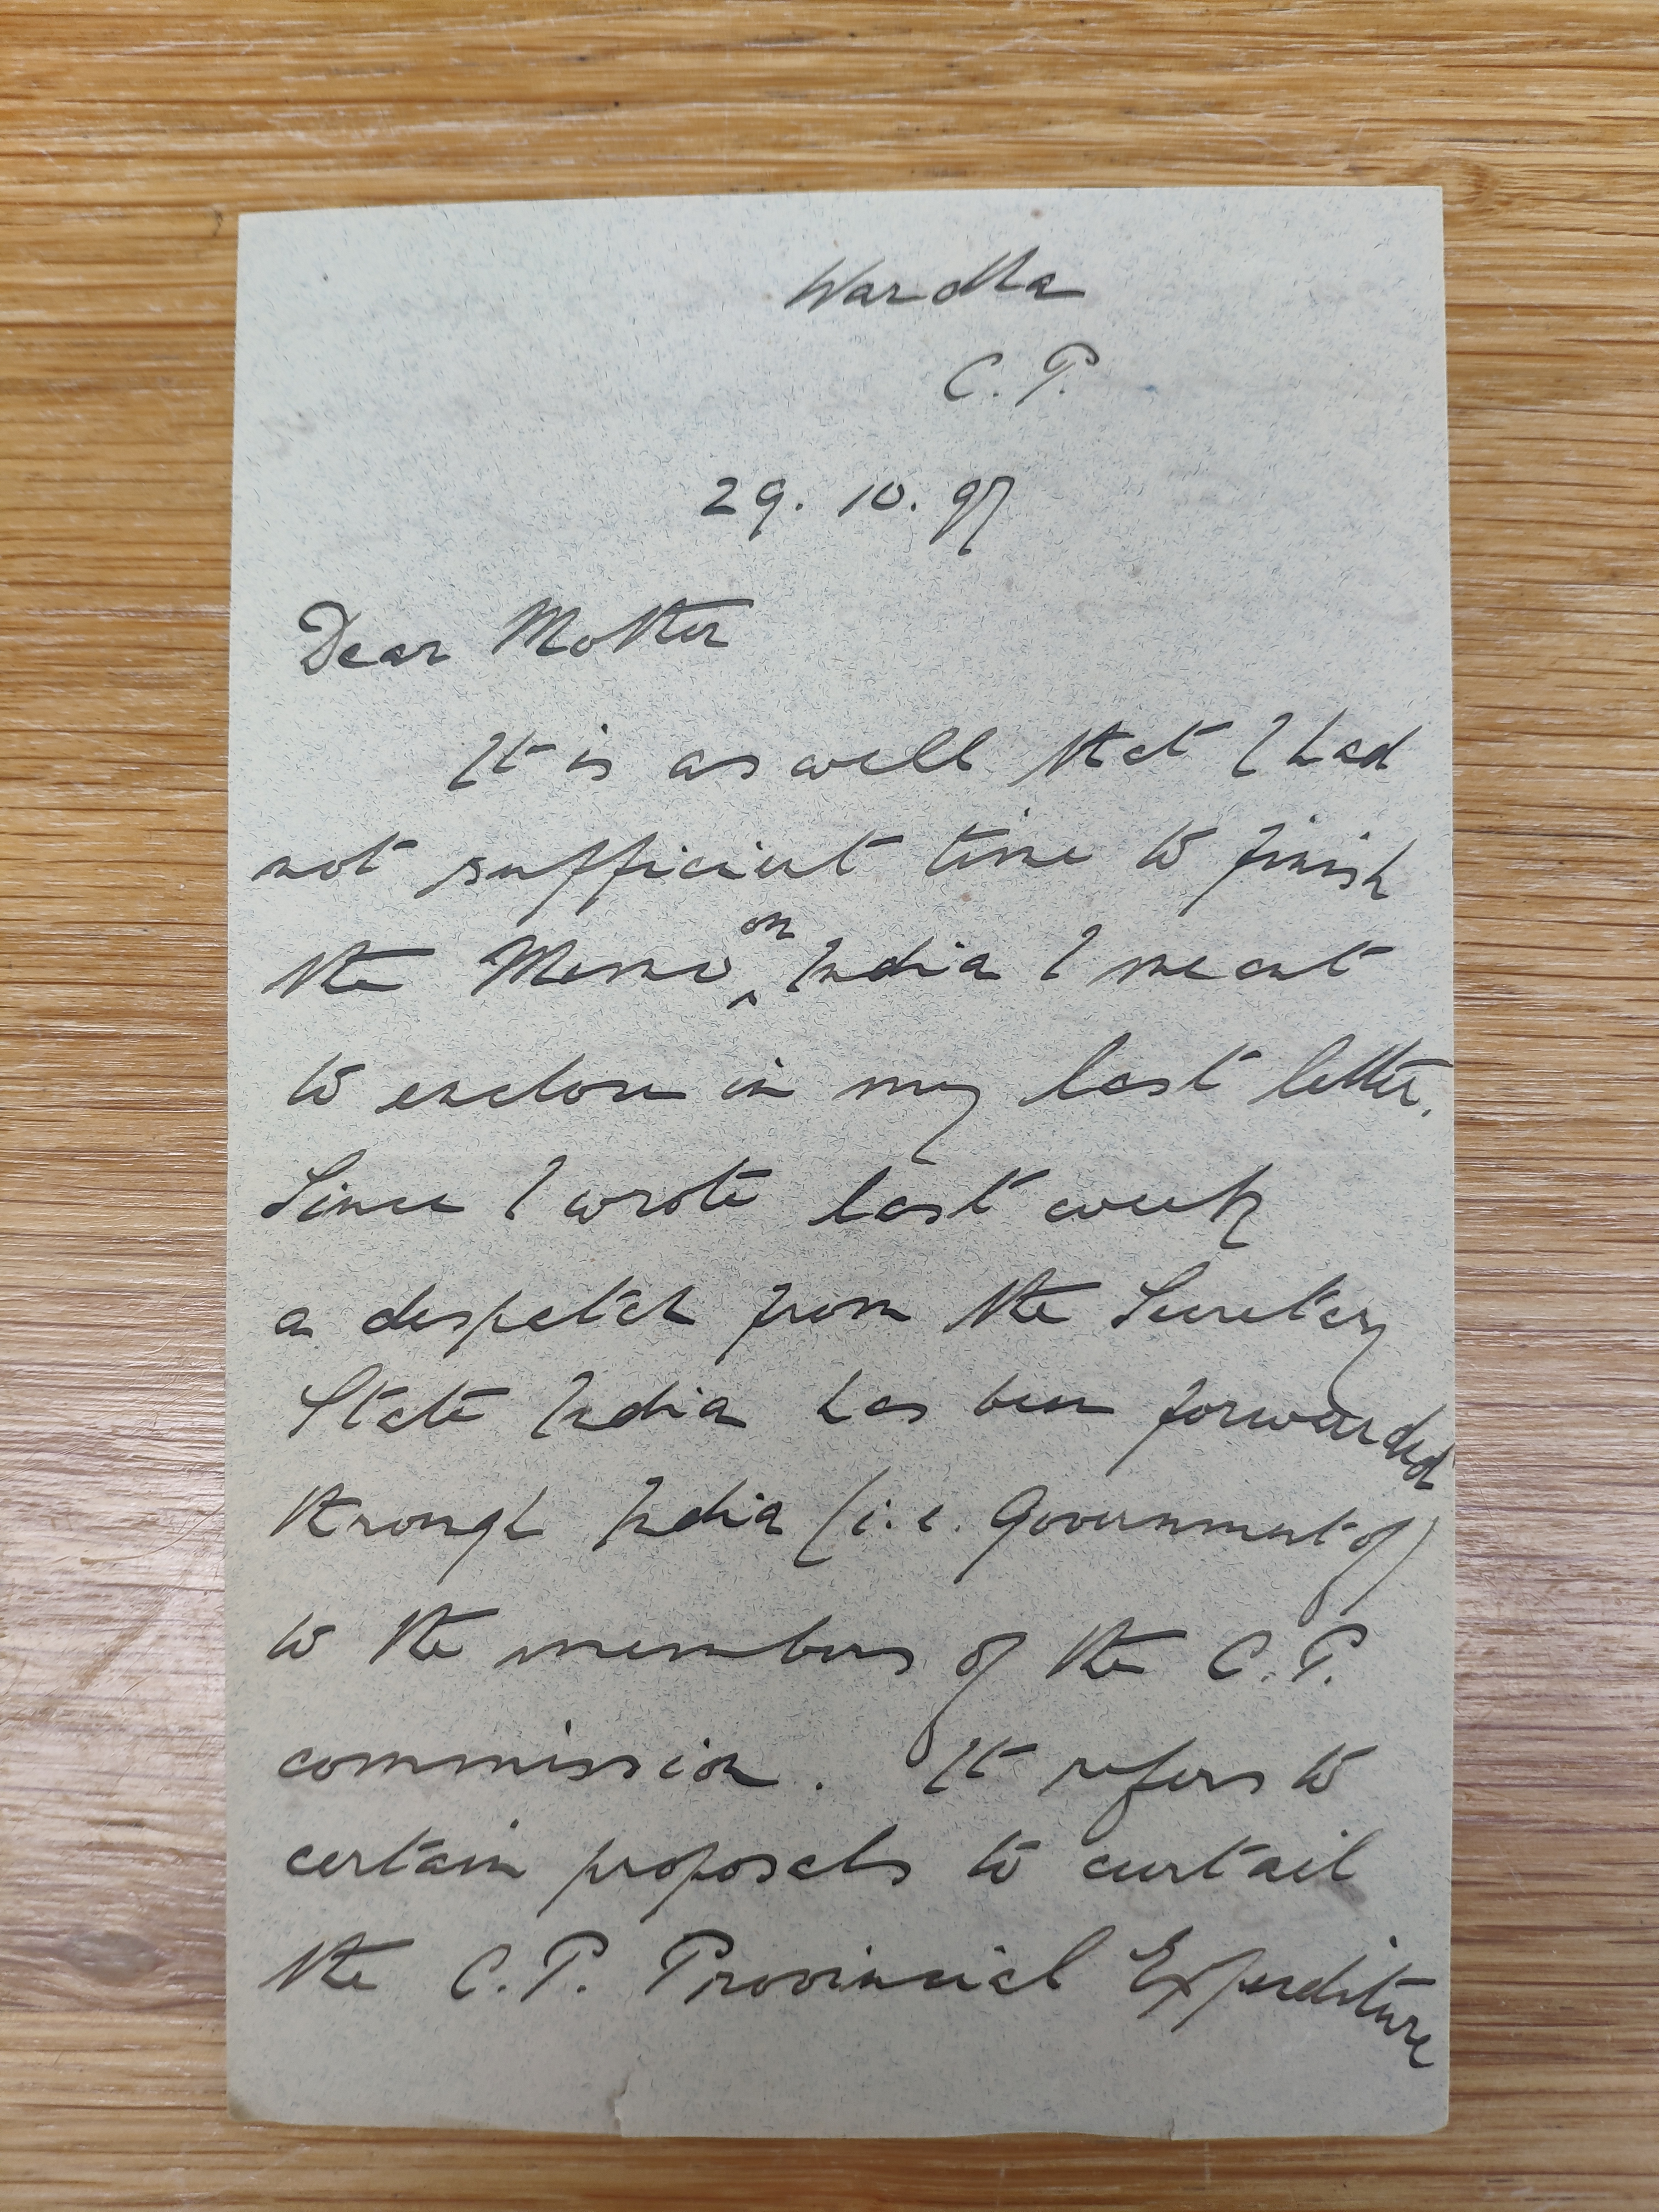 Wardha
C. P.
29. 10. 97
Dear Mother
It is as well that I had
not sufficient time to finish
the Memo ^on India I meant
to enclose in my last letter.
Since I wrote last week
a despatch from the Secretary
State India has been forwarded
through India (i.e. Government of)
to the members of the C. P.
commission. It refers to
certain proposals to curtail
the C. P. Provincial Expenditure